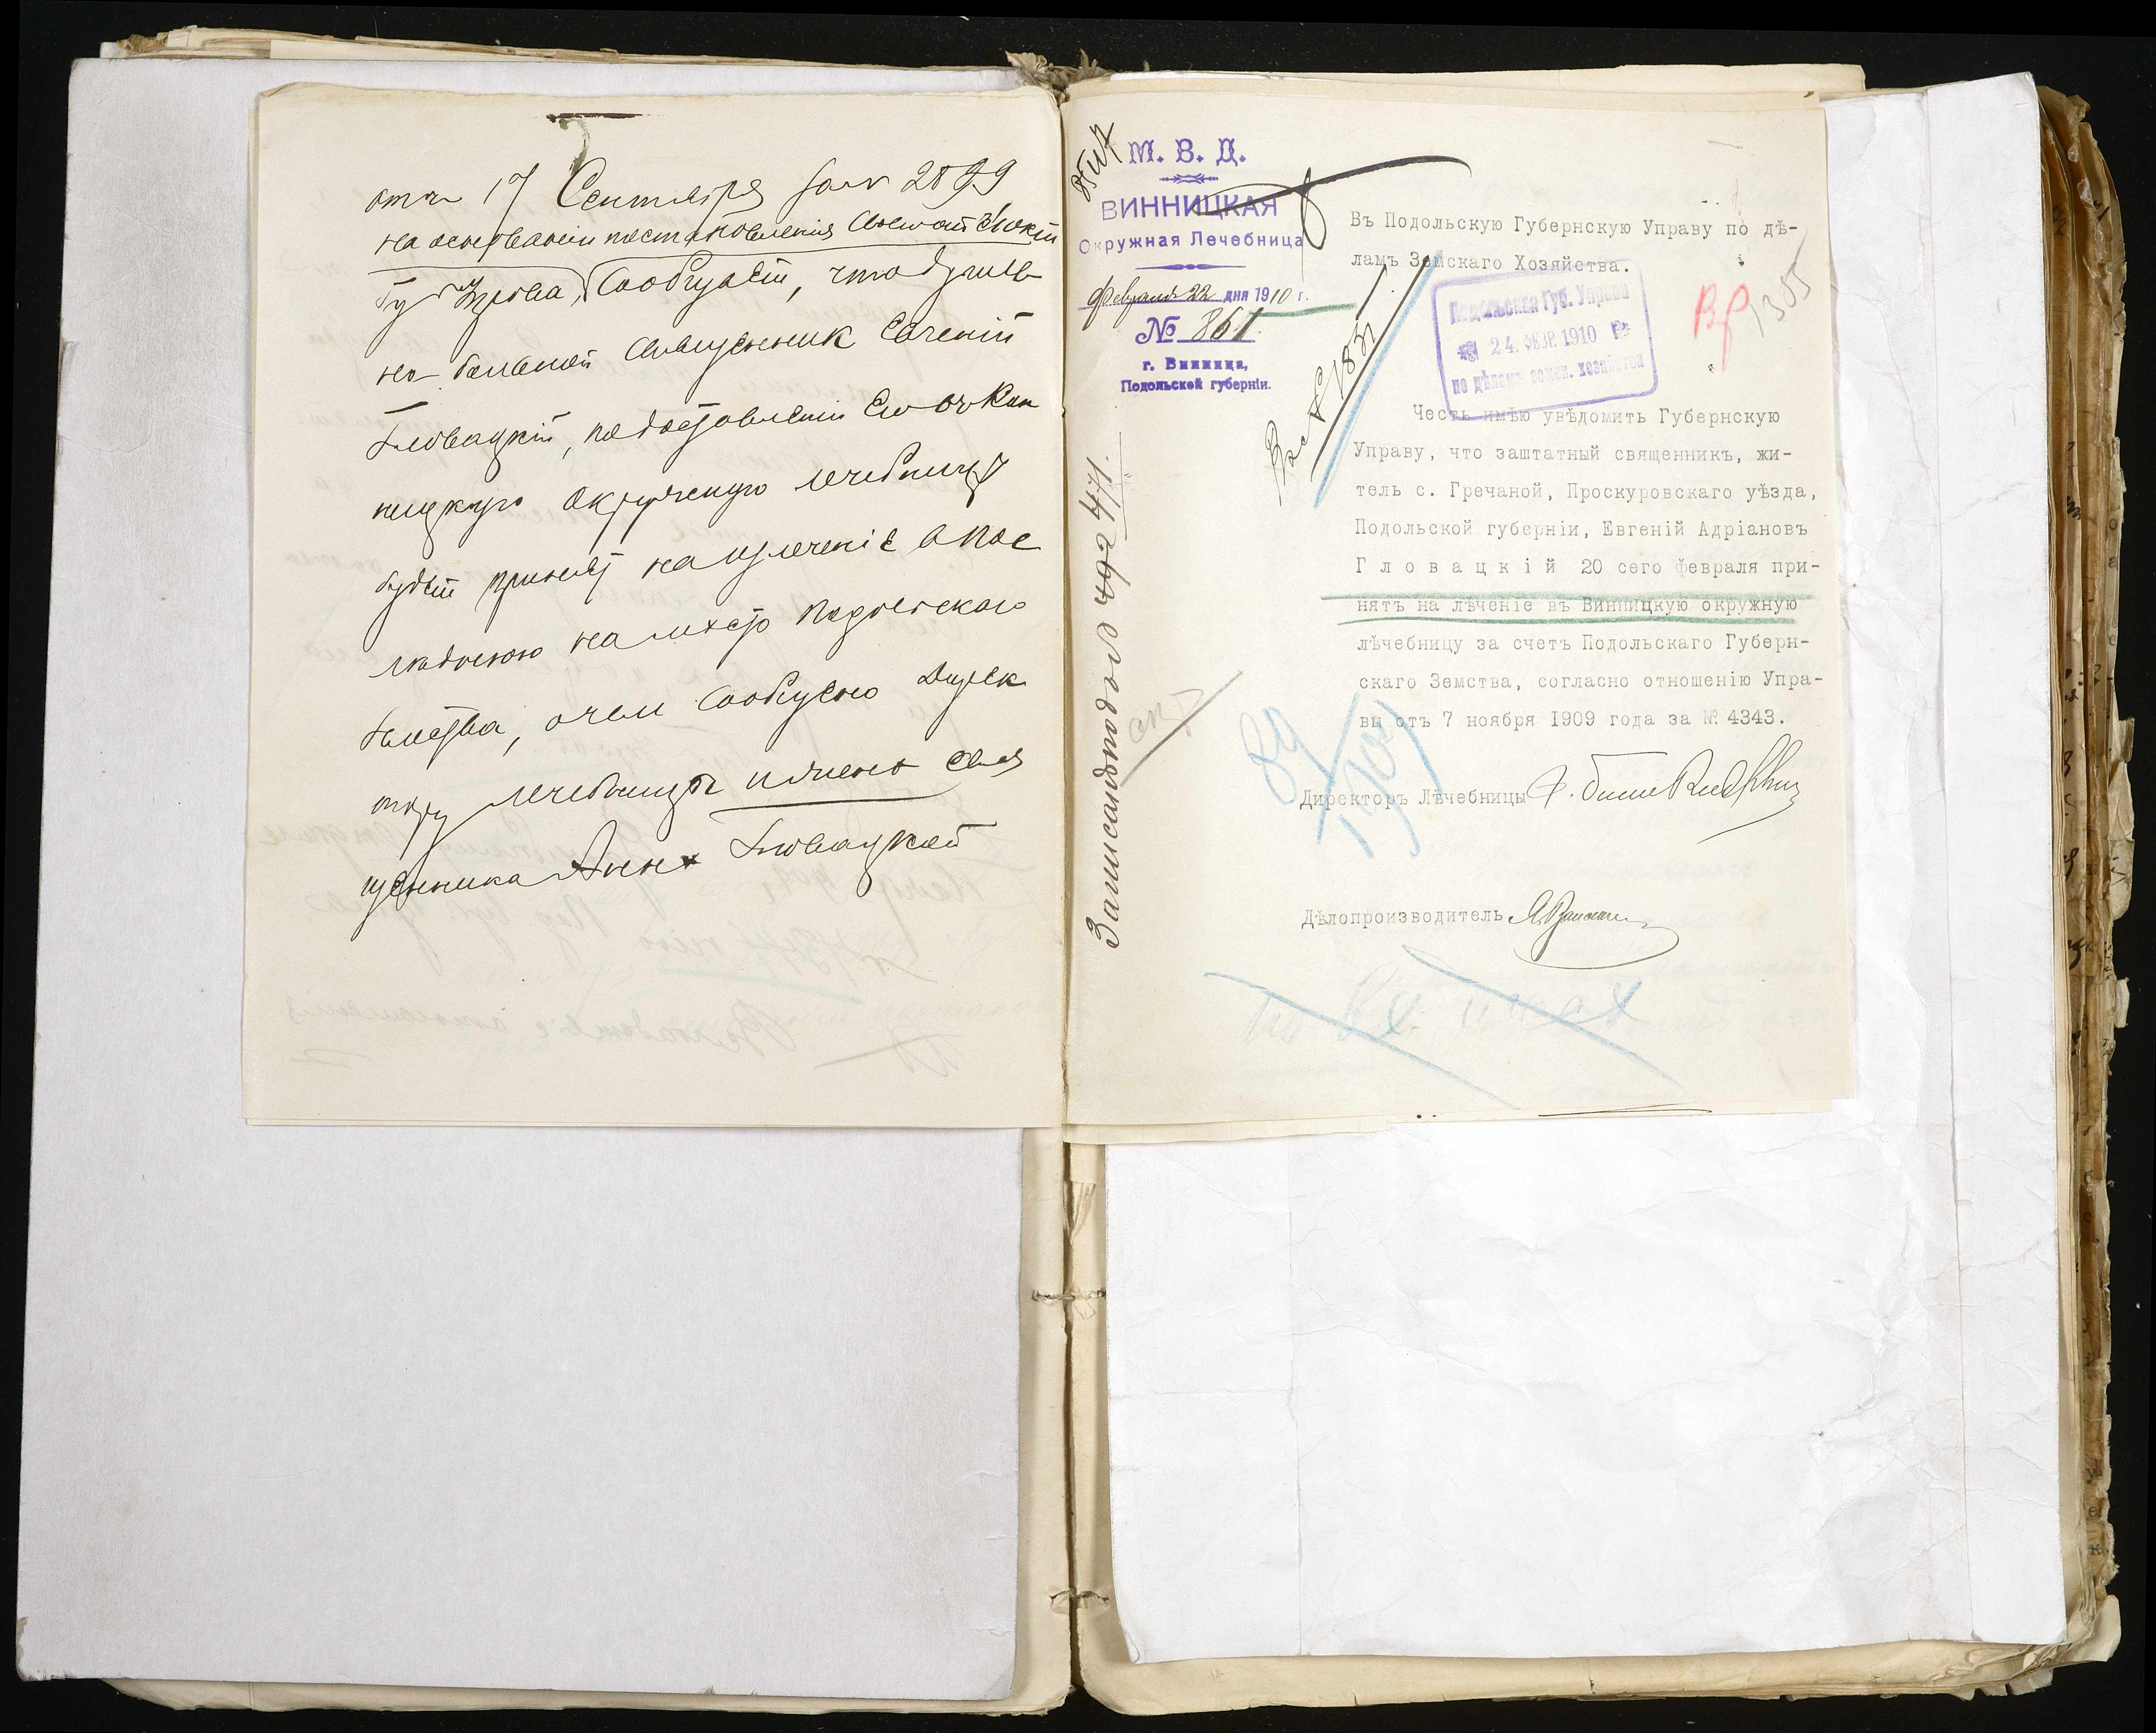 отъ 17 Сентября за № 2899
на основаніи постановленія
Управа, сообщаетъ, что душев
но больной Священник Евгеній
Гловацкій, по доставленіи Его въ Вин
ницкую Окружную лечебницу
будетъ принятъ на излеченіе
на Подольскаго
Земства, о чем сообщено Дирек
тору лечебницы и жене Свя
щенника Анне Гловацкой
М. В. Д.
ВИННИЦКАЯ
Окружная Лечебница
Февраля 22 дня 1910 г.
№ 861.
г. Винница,
Подольской губерніи.
Въ Подольскую Губернскую Управу по дѣ-
ламъ Земскаго Хозяйства.
Подольская Губ. Управа
24. ФЕВР. 1910
по дѣламъ земск. хозяйства
1305
Честь имѣю увѣдомить Губернскую
Управу, что заштатный священникъ, жи-
тель с. Гречаной, Проскуровскаго уѣзда,
Подольской губерніи, Евгеній Адріановъ
Гловацкій 20 сего февраля при-
нятъ на лѣченіе въ Винницкую окружную
лѣчебницу за счетъ Подольскаго Губерн-
скаго Земства, согласно отношенію Упра-
вы отъ 7 ноября 1909 года за № 4343.
Директоръ Лѣчебницы
Дѣлопроизводитель
Записано подъ № 492 471.
89
1909